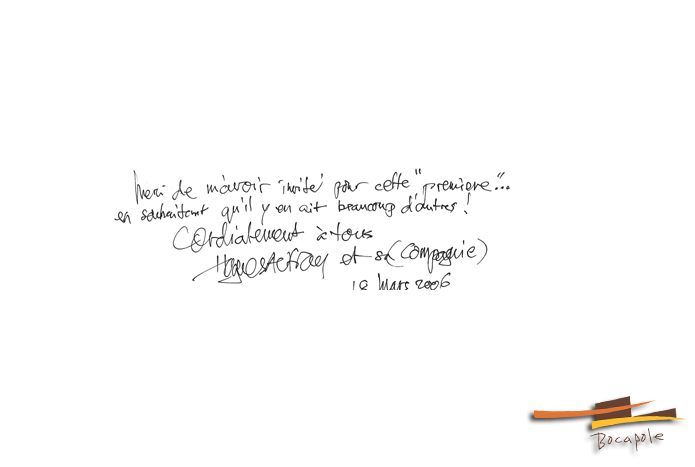 Merci de m'avoir invité pour cette "première"...
en souhaitant qu'il y en ait beaucoup d'autres !
Cordialement à tous
Hugues Aufray et sa (Compagnie)
10 Mars 2006
Bocapole